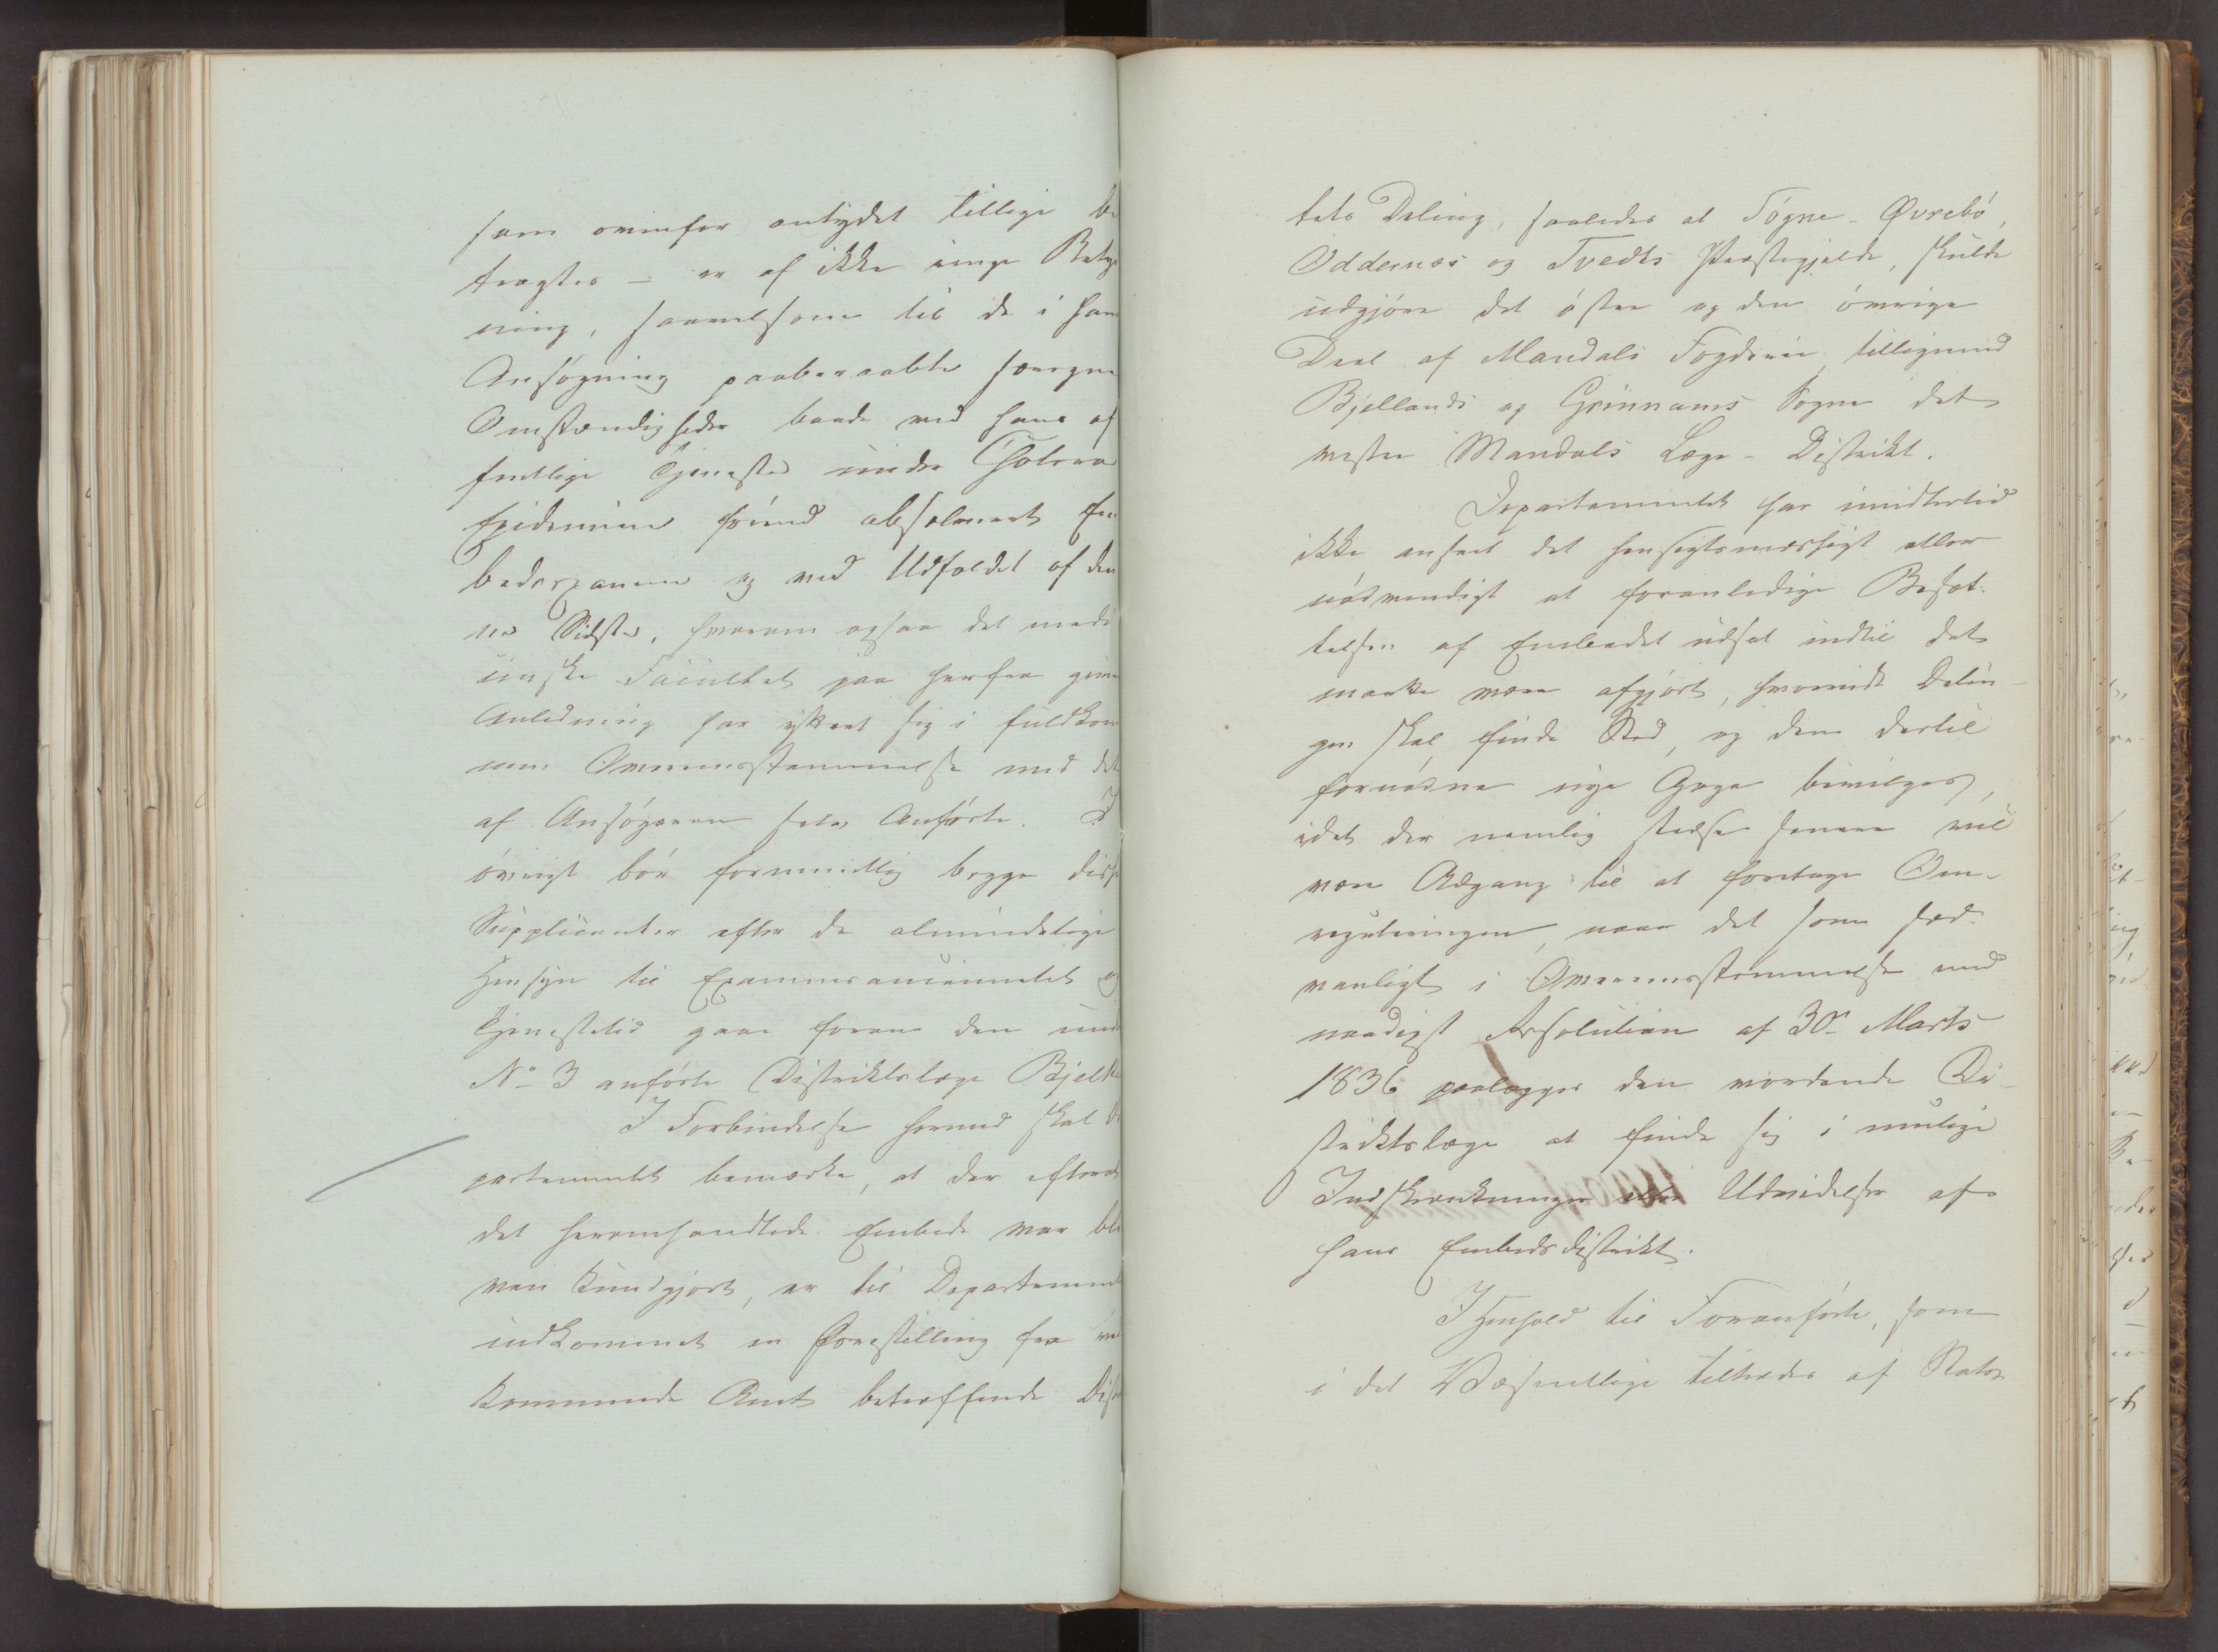 som ovenfor antydet tillige be
tragtes - er af ikke ringe Betyd
ning, saavelsom til de i hans
Ansøgning paaberaabte særegne
Omstændigheder baade med hans of
fentlige Tjeneste under Cholera
Epidemien forend absolveret Em
bedsexamen og med Udfaldet af den
ne Sidste, hvorom ogsaa det medi
cinske Facultet paa herfra given
Anledning har yttret sig i fuldkom
men Overensstemmelse med det
af Ansøgeren selv Anførte. I
øvrigt bør formentlig begge disse
Supplicanter efter de almindelige
Hensyn til Examensanciennetet og
Tjenestetid gaae foran den under
No 3 anførte Distriktslæge Bjelke
I Forbindelse hermed skal De
partementet bemærke, at der efterat
det heromhandlede Embede var ble
ven kundgjort, er til Departementet
indkommet en Forestilling fra ved
kommende Amt betreffende Distrik
tets Deling, saaledes at Søgne - Øvrebø,
Oddernæs og Tvedts Præstegjelde, skulde
udgjøre det østre og den øvrige
Deel af Mandals Fogderie tilligemed
Bjellands og Grinnams Sogne det
vestre Mandals Læge-Distrikt.
Departementet har imidlertid
ikke anseet det hensigtsmæssigt eller
nødvendigt at foranledige Besæt-
telsen af Embedet udsat indtil det
maatte være afgjort, hvorvidt Delin-
gen skal finde Sted, og den dertil
fornødne nye Gage bevilges,
idet der nemlig stedse senere vil
være Adgang til at foretage Om-
reguleringen, naar det som sæd-
vanligt i Overensstemmelse med
naadigst Resolution af 30. Marts
1836 paalægges den vordende Di-
striktslæge at finde sig i mulige
Indskrænkninger eller Udvidelser af
hans Embedsdistrikt.
I Henhold til Foranførte, som
i det Væsentlige tiltrædes af Stats-